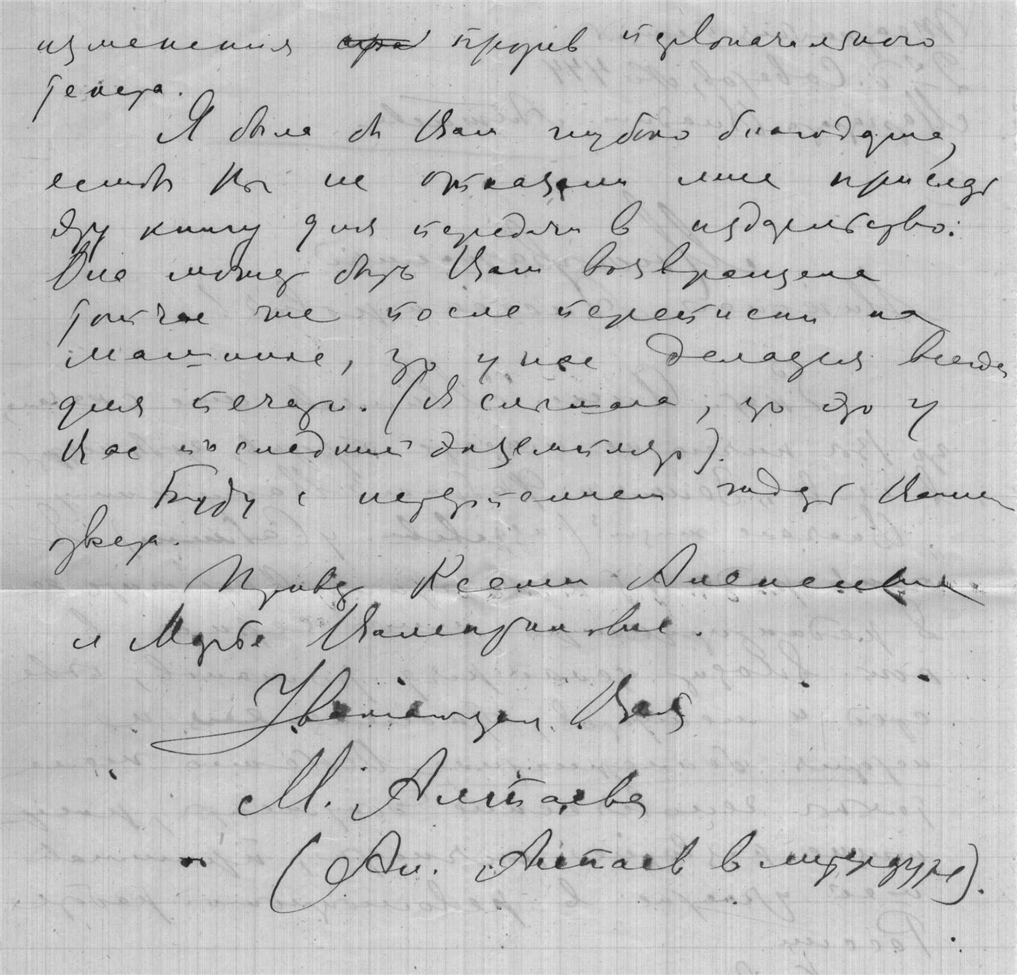 изменения против первоначального
текста.
Я была бы Вам глубоко благодарна,
если бы Вы не отказали мне прислать
эту книгу для передачи в издательство.
Она может быть Вам возвращена
тотчас же после переписки на
машинке, что у нас делается всегда
для печати. (Я слышала, что это у
Вас последний экземпляр).
Буду с нетерпением ждать Вашего
ответа.
Привет Ксении Алексеевне
и Марте Валентиновне.
Уважающая Вас
М. Алтаева
(Ал. Алтаев в литературе).